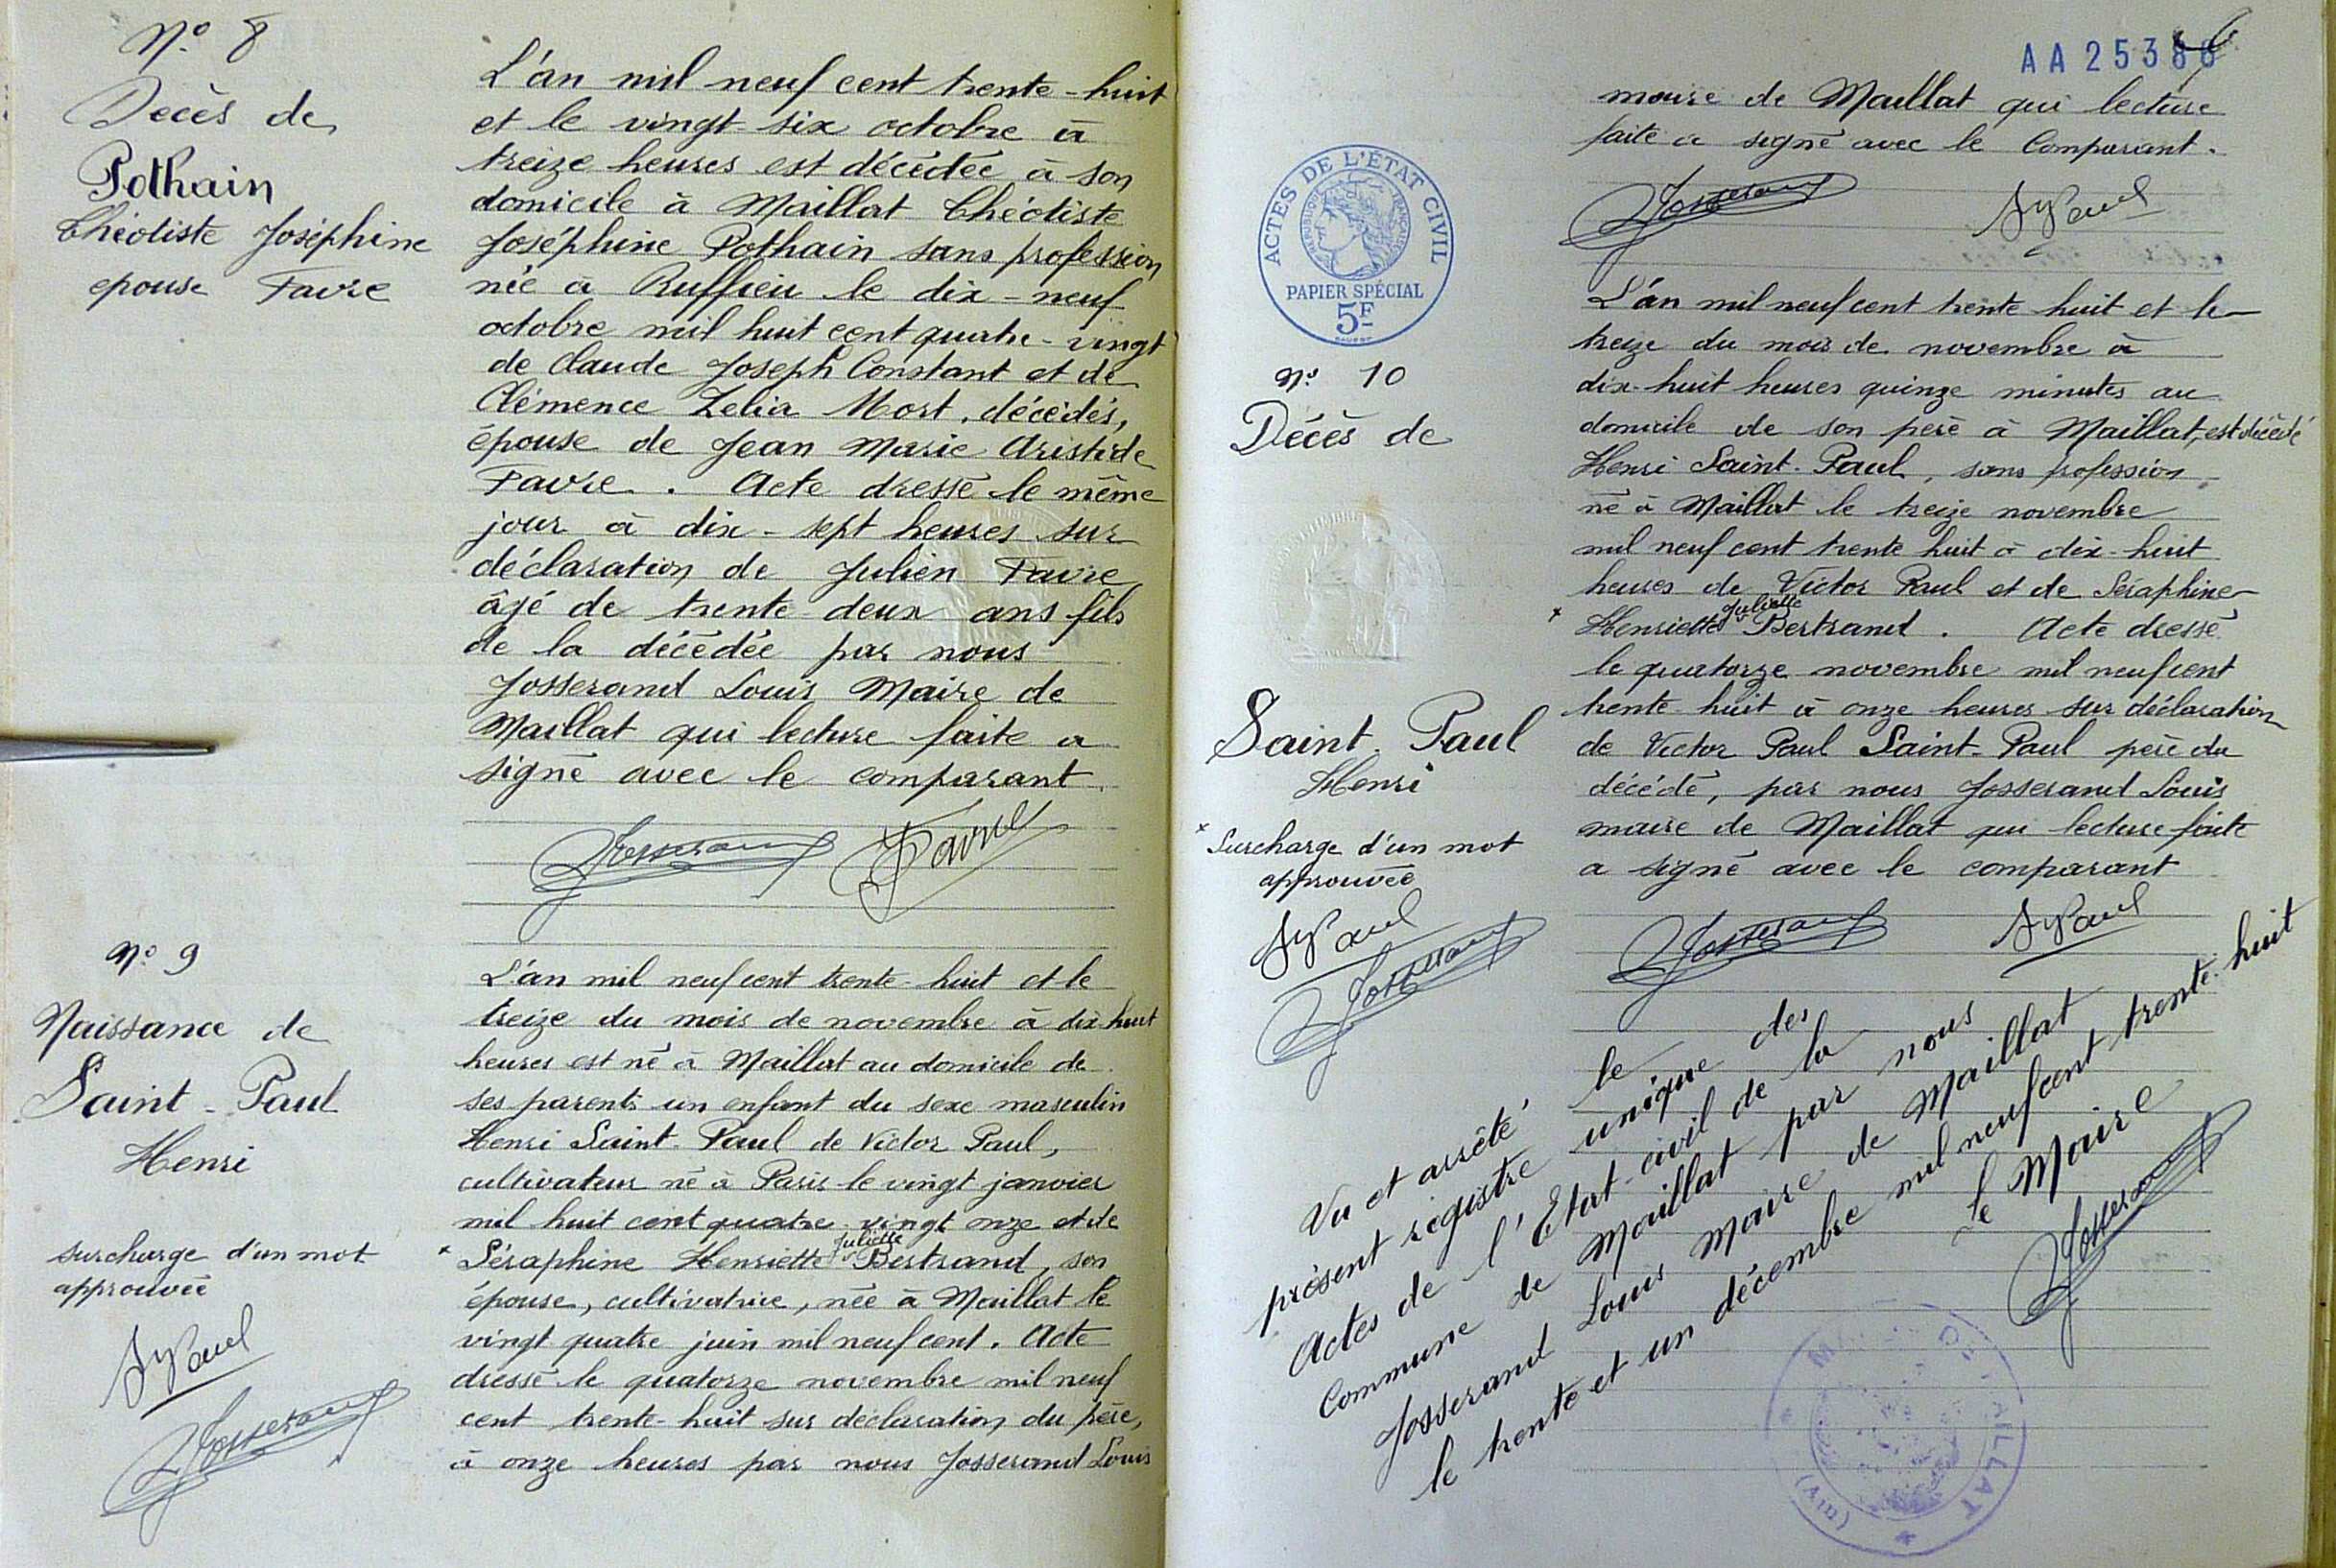 N.o 8
Decès de
Pothain
Théotiste Joséphine
epouse Favre
L'án mil neuf cent trente-huit
et le vingt-six octobre à
treize heures est décédée à son
domicile à Maillat Théotiste
Joséphine Pothain sans profession
née à Ruffieu le dix-neuf
octobre mil huit cent quatre-vingt
de Claude Joseph Constant et de
Clémence Zelia Mort, décédés,
épouse de Jean Marie Aristide
Favre. Acte dressé le même
jour à dix-sept heures sur
déclaration de Julien Favre
âgé de trente-deux ans fils
de la décédée par nous
Josserand Louis Maire de
Maillat qui lecture faite a
signé avec le comparant.
Josserand Favre
N.o 9
Naissance de
Saint-Paul
Henri
surcharge d'un mot
approuvée
StPaul
Josserand
L'án mil neuf cent trente-huit et le
treize du mois de novembre à dix-huit
heures est né à Maillat au domicile de
ses parents un enfant du sexe masculin
Henri Saint-Paul de Victor Paul,
cultivateur né à Paris le vingt janvier
mil huit cent quatre-vingt onze et de
Juliette
x Séraphine Henriette v Bertrand, son
épouse, cultivatrice, née à Maillat le
vingt quatre juin mil neuf cent. Acte
dressé le quatorze novembre mil neuf
cent trente-huit sur déclaration du père,
à onze heures par nous Josserand Louis
AA 25388
6
maire de Maillat qui lecture
faite a signé avec le Comparant.
Josserand StPaul
ACTES DE L'ÉTAT CIVIL
RÉPUBLIQUE FRANÇAISE
PAPIER SPÉCIAL
5F
N.o 10
Décès de
Saint-Paul
Henri
x Surcharge d'un mot
approuvée
StPaul
Josserand
L'án mil neuf cent trente huit et le
treize du mois de novembre à
dix-huit heures quinze minutes au
domicile de son père à Maillat, est décédé
Henri Saint-Paul, sans profession
né à Maillat le treize novembre
mil neuf cent trente huit à dix-huit
heures de Victor Paul et de Séraphine
Juliette
x Henriette v Bertrand. Acte dressé
le quatorze novembre mil neuf cent
trente-huit à onze heures sur déclaration
de Victor Paul Saint-Paul père du
décédé, par nous Josserand Louis
maire de Maillat qui lecture faite
a signé avec le comparant
Josserand StPaul
Vu et arrêté le
présent registre unique des
Actes de l'Etat-civil de la
Commune de Maillat par nous
Josserand Louis Maire de Maillat
le trente et un décembre mil neuf cent trente-huit
Le Maire
Josserand
MAILLAT
(Ain)